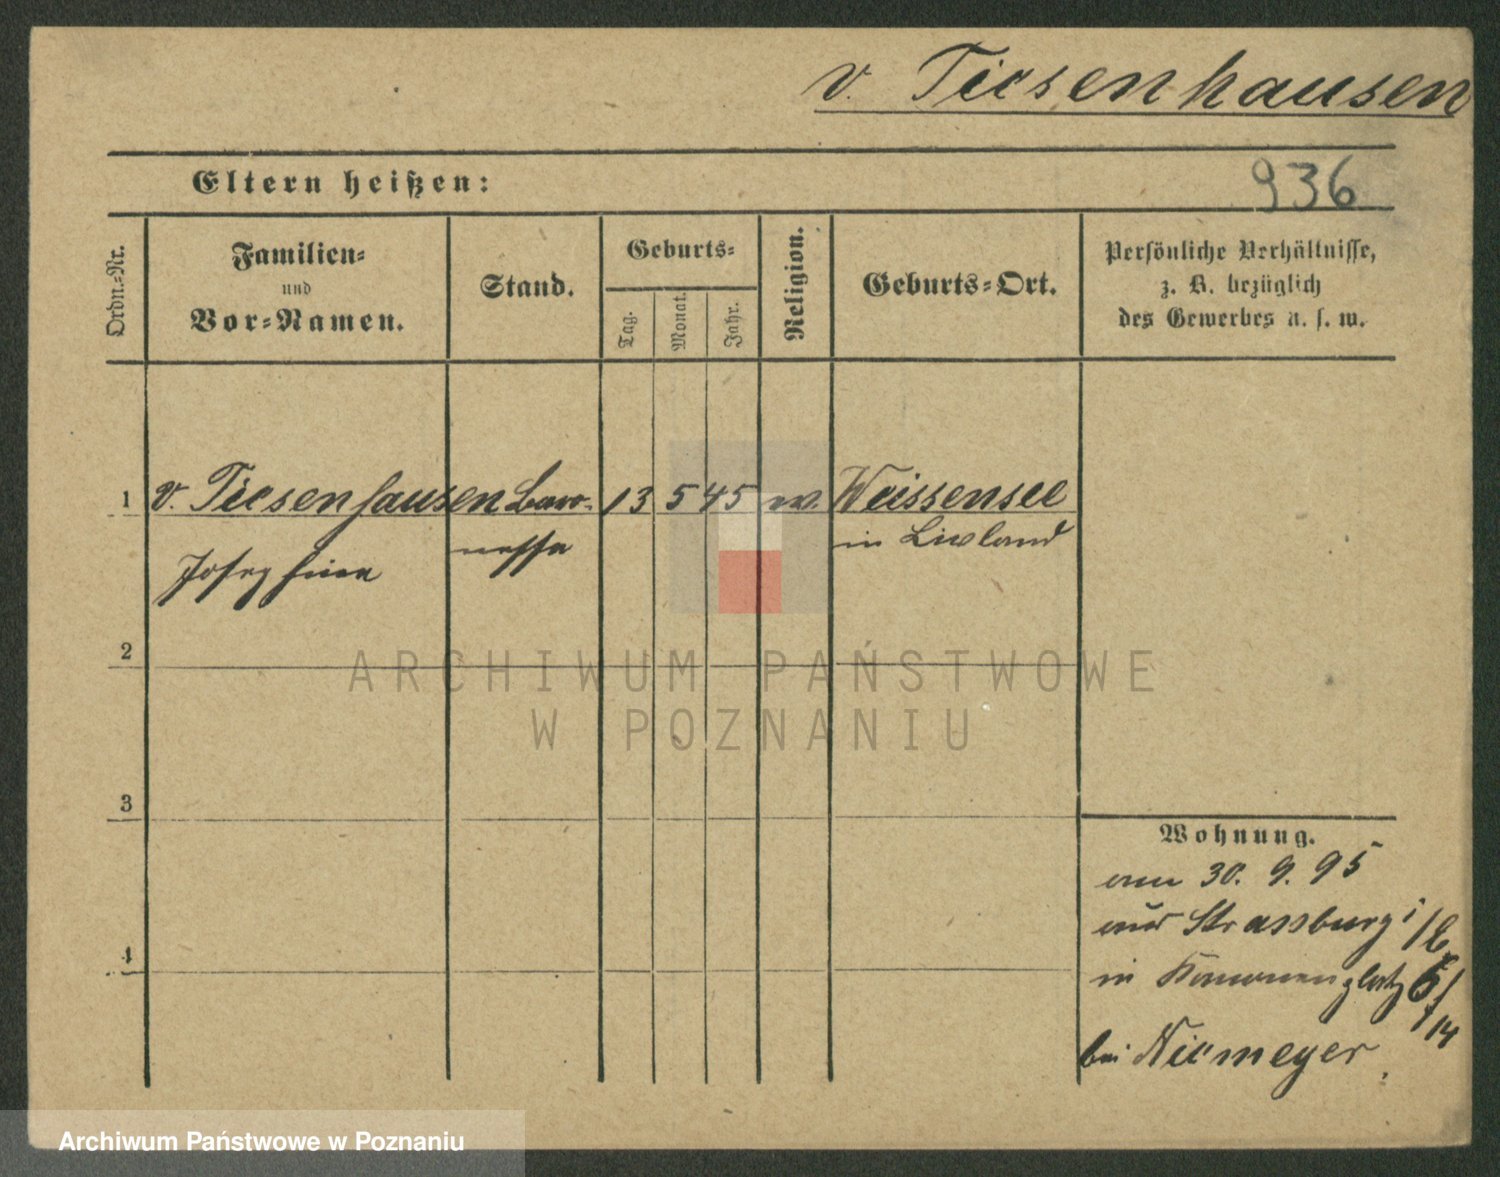 v. Tiesenhausen
Eltern heißen:
936
Ordn.-Nr.
Familien-
und
Vor-Namen.
Stand.
Geburts-
Tag.
Monat.
Jahr.
Religion.
Geburts-Ort.
Persönliche Verhältnisse,
z. B. bezüglich
des Gewerbes u. s. w.
1 v. Tiesenhausen Baro- 13 5 45 ev. Weissensee
Josephine nesse in Livland
2
ARCHIWUM PAŃSTWOWE
W POZNANIU
3
Wohnung.
am 30. 9. 95
aus Strassburg i/E
in
bei Niemeyer
4
Archiwum Państwowe w Poznaniu